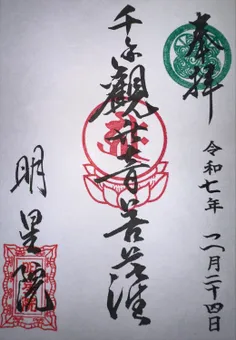 奉拝
令和七年 十一月二十四日
千手觀世音菩薩
明星院